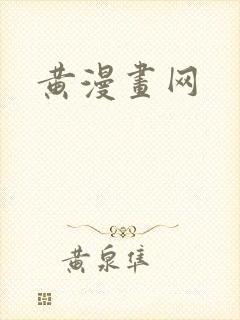 黄漫畫网
黄泉隼